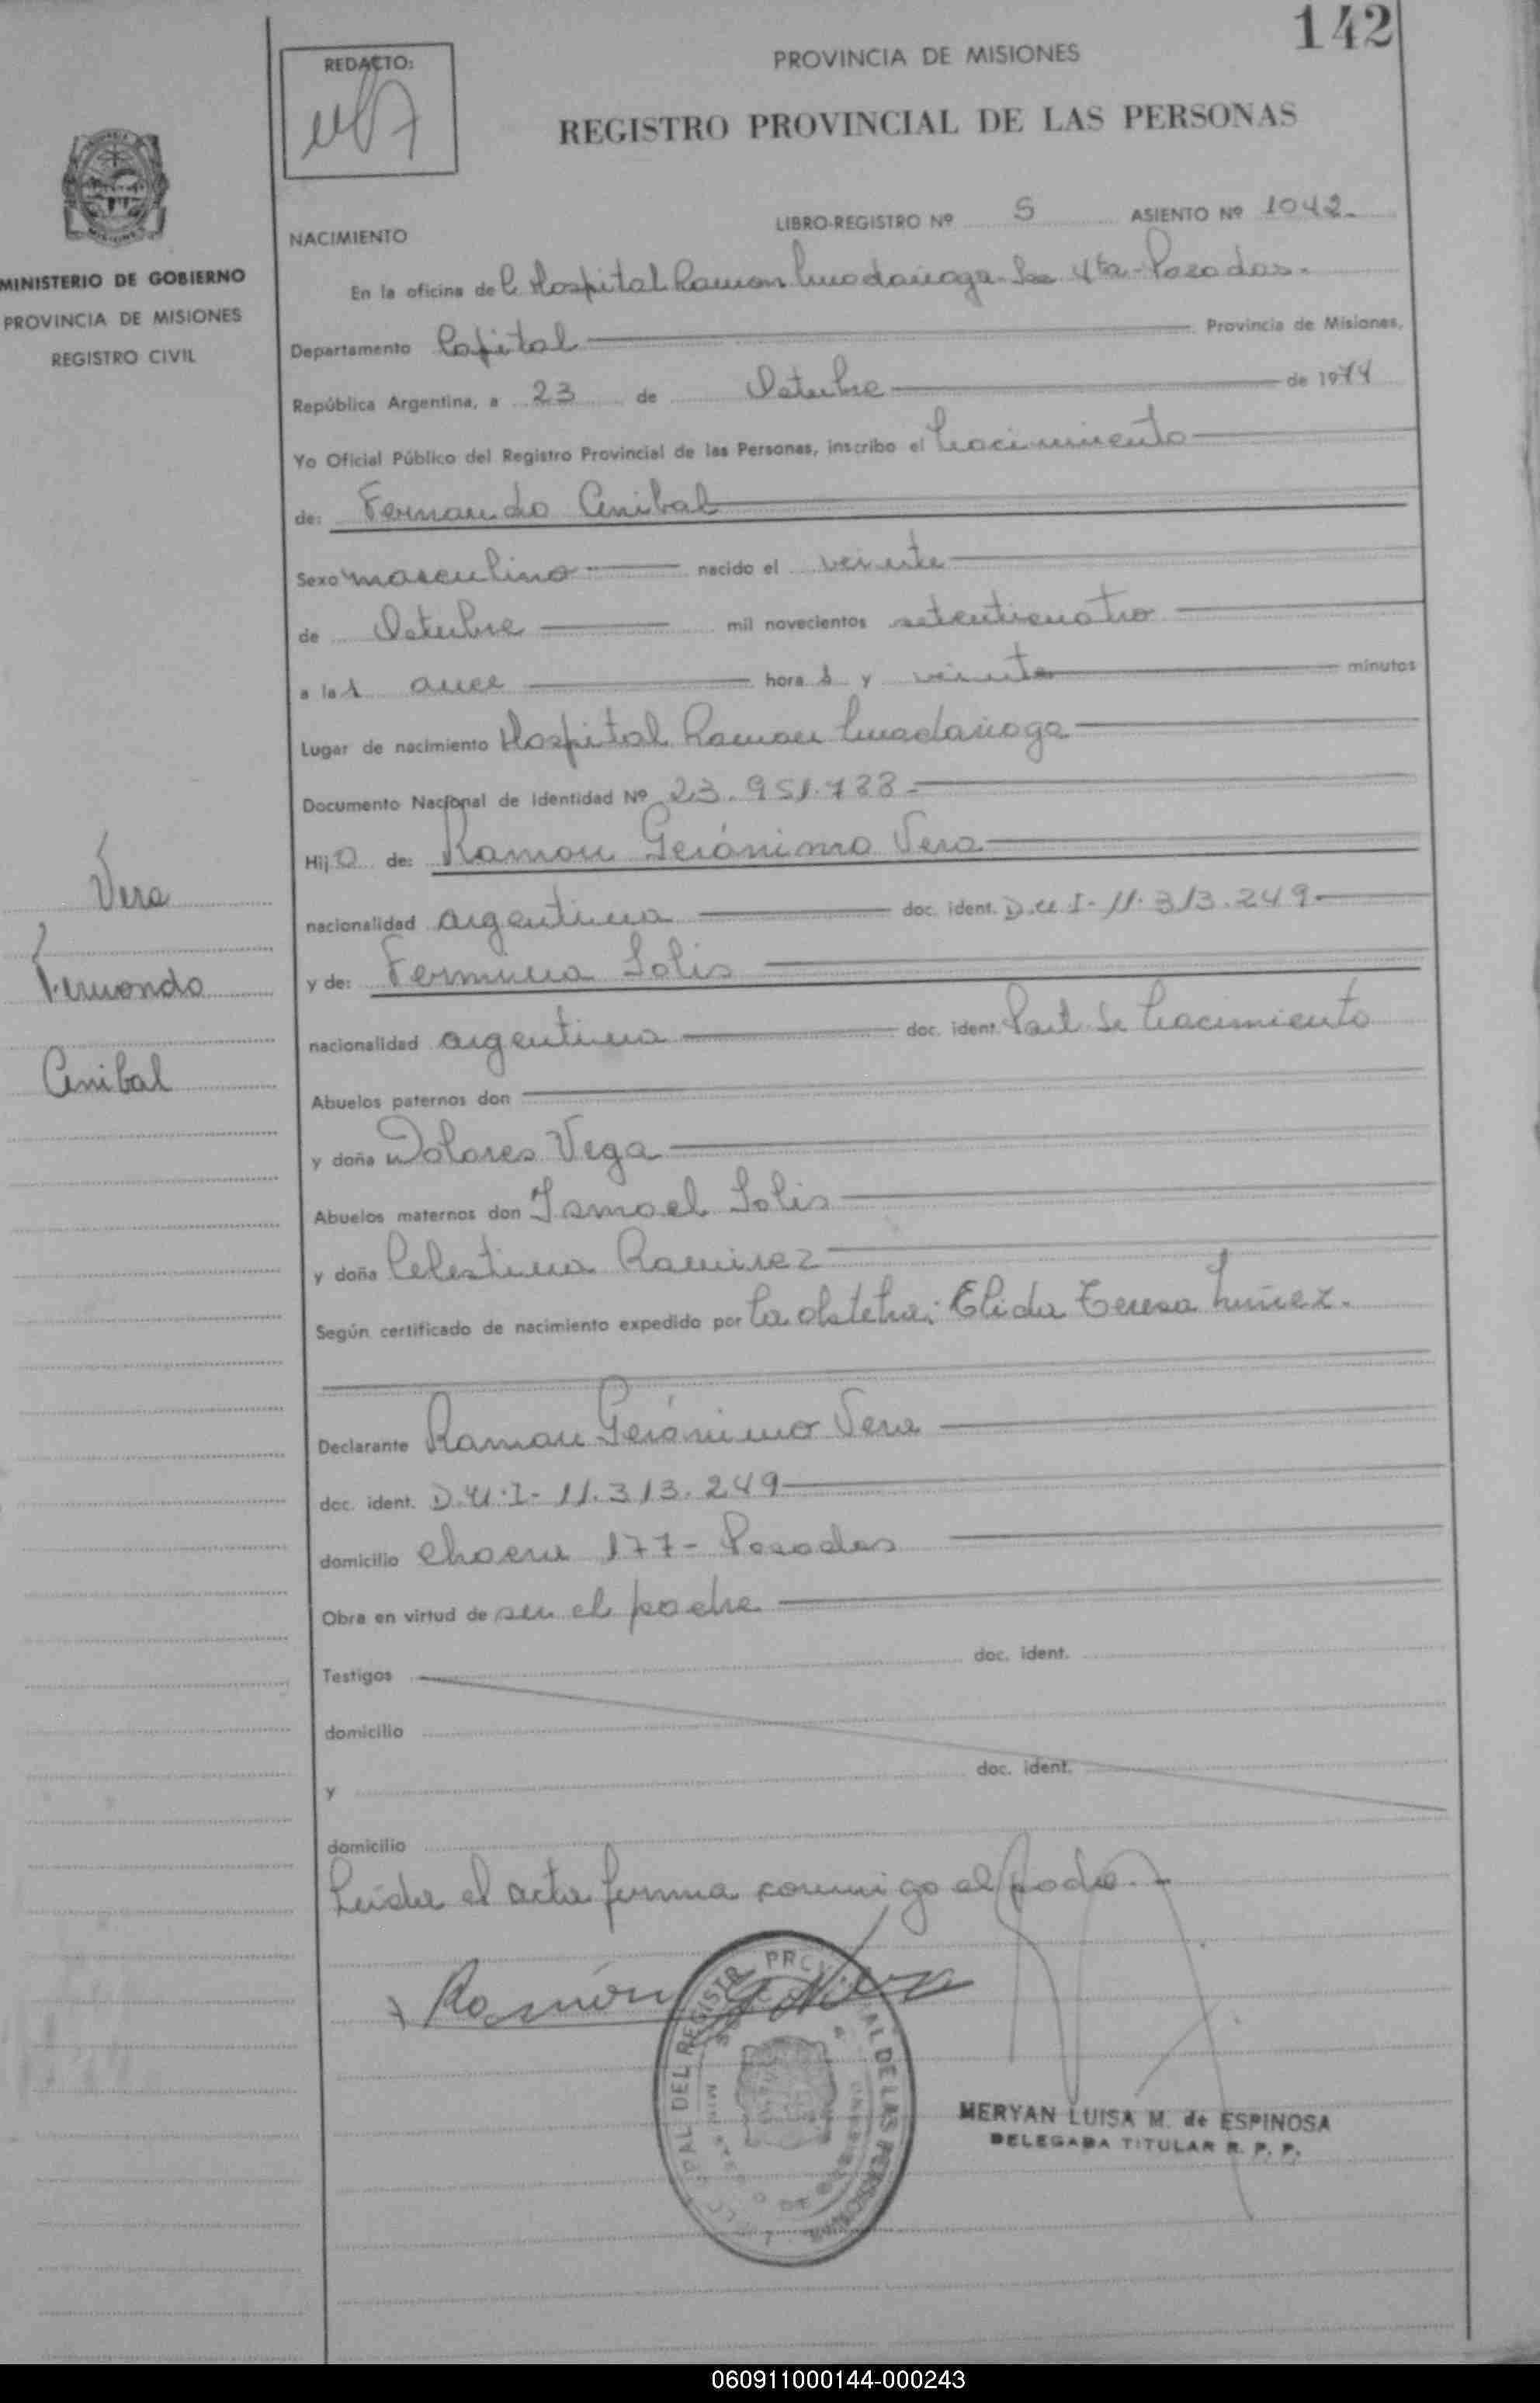 142
REDACTO:
PROVINCIA DE MISIONES
REGISTRO PROVINCIAL DE LAS PERSONAS
MINISTERIO DE GOBIERNO
PROVINCIA DE MISIONES
REGISTRO CIVIL
NACIMIENTO LIBRO-REGISTRO Nº 5 ASIENTO Nº 1042.
En la oficina del Hospital Ramon Madariaga Sec 4ta - Posadas.
Departamento Capital Provincia de Misiones,
República Argentina, a 23 de Octubre de 1974
Yo Oficial Público del Registro Provincial de las Personas, inscribo el Nacimiento
de: Fernando Anibal
Sexo masculino nacido el veinte
de Octubre mil novecientos setenticuatro
a las once horas y veinte minutos
Lugar de nacimiento Hospital Ramon Madariaga
Documento Nacional de Identidad Nº 23.951.788.
Hijo de: Ramon Gerónimo Vera
nacionalidad argentina doc. ident. D.U.I- 11.313.249.
y de: Fermina Solis
nacionalidad argentina doc. ident. Part de Nacimiento
Abuelos paternos don
y doña Dolores Vega
Abuelos maternos don Ismael Solis
y doña Celestina Ramirez
Según certificado de nacimiento expedido por la obstetra; Elida Teresa Nuñez.
Declarante Ramon Gerónimo Vera
doc. ident. D.U.I- 11.313.249
domicilio Chacra 177- Posadas
Obra en virtud de ser el padre
Testigos doc. ident.
domicilio
y doc. ident.
domicilio
Leida el acta firma conmigo el padre.-
Vera
Fernando
Anibal
Ramón G. Vera
MERYAN LUISA M. de ESPINOSA
DELEGADA TITULAR R. P. P.
060911000144-000243